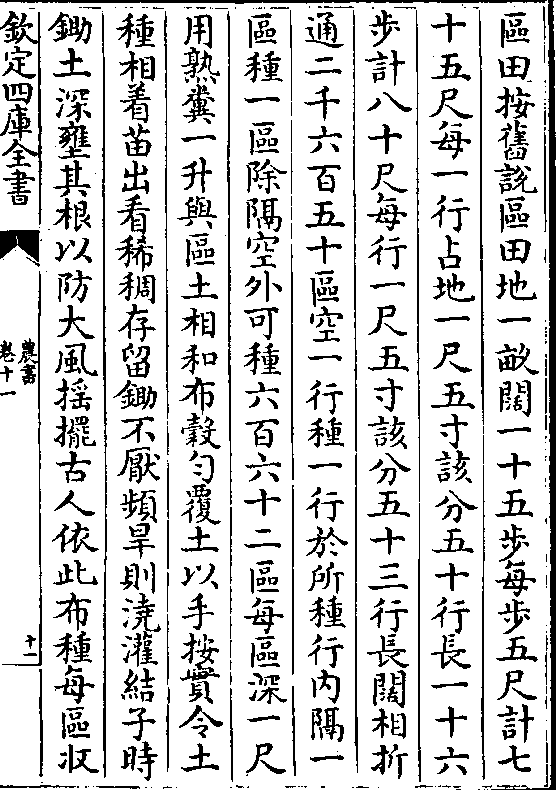 區田按舊説區田地一畝闊一十五步每步五尺計七
十五尺每一行占地一尺五寸該分五十行長一十六
步計八十尺每行一尺五寸該分五十三行長闊相折
通二千六百五十區空一行種一行於所種行内隔一
區種一區除隔空外可種六百六十二區每區深一尺
用熟糞一升與區土相和布穀勻覆土以手按實令土
種相着苗出看稀稠存留鋤不厭頻旱則澆灌結子時
鋤土深壅其根以防大風摇擺古人依此布種每區收
欽定四庫全書
農書
卷十一
十一